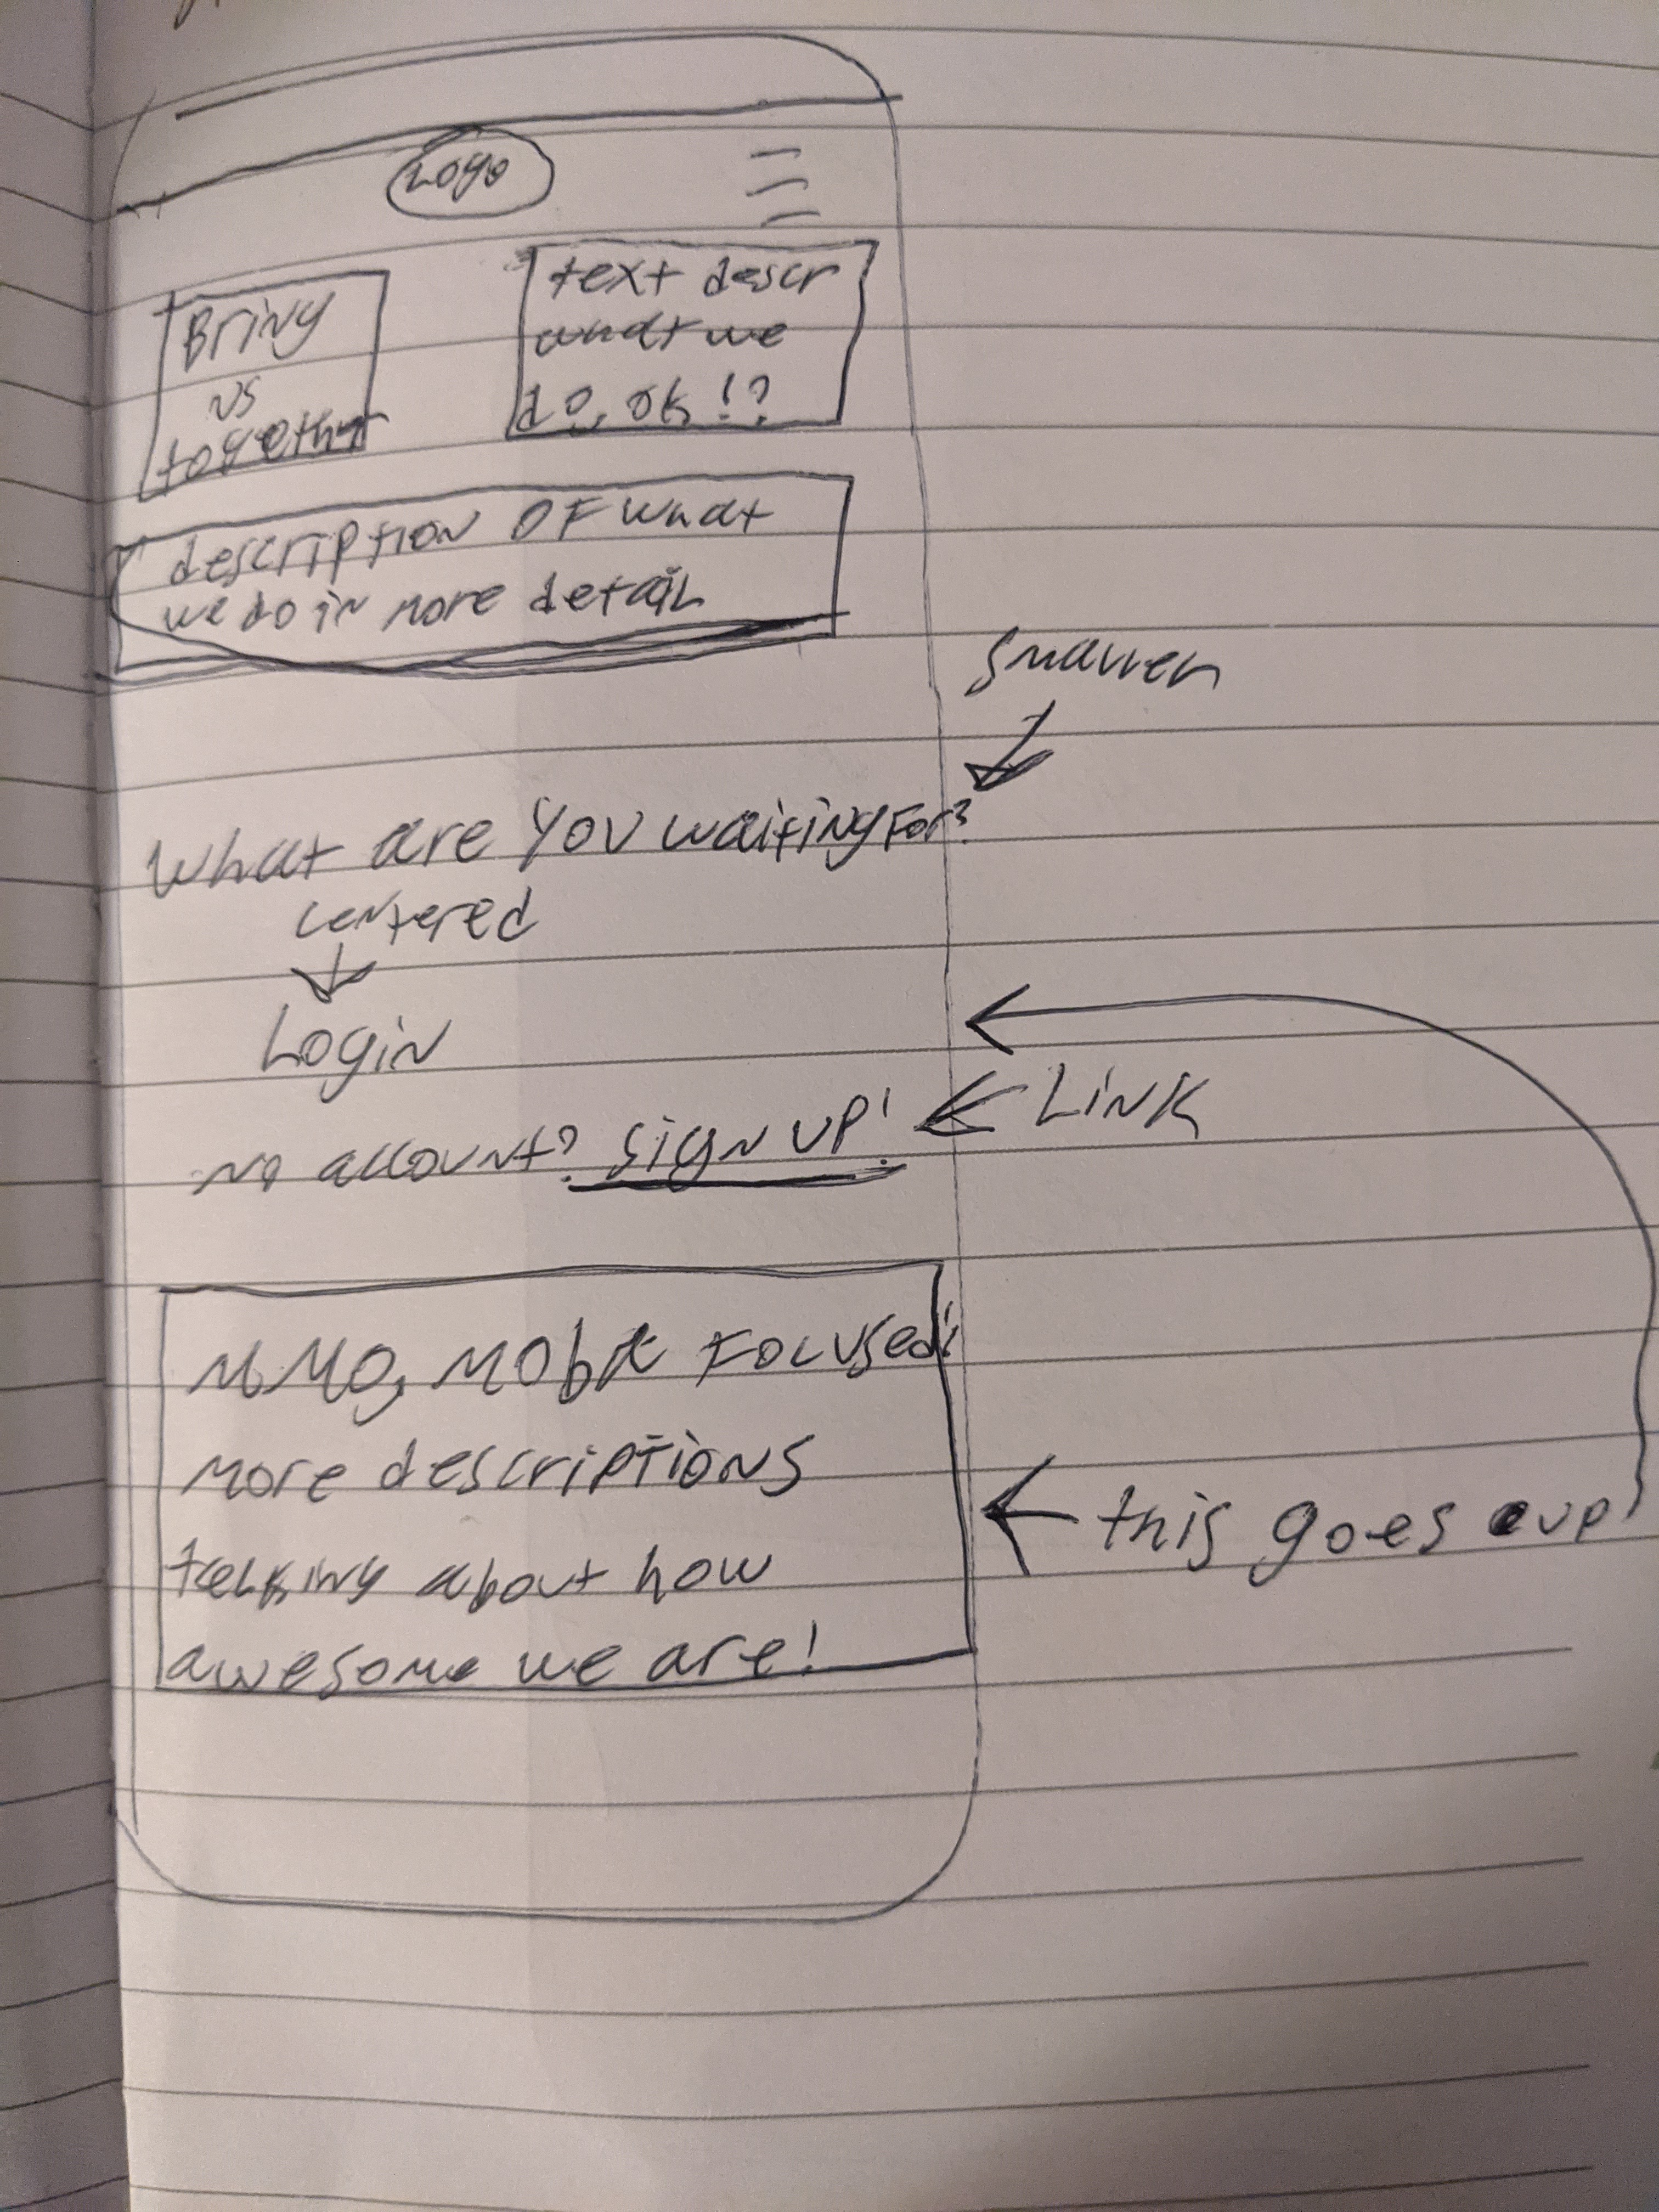 Logo
Bring
us
together
text descr
what we
do, ok!?
description OF what
we do in more detail
smaller
What are you waiting For?
centered
Login
no account? sign up!
Link
MMO, MObA Focused!
more descriptions
talking about how
awesome we are!
this goes up